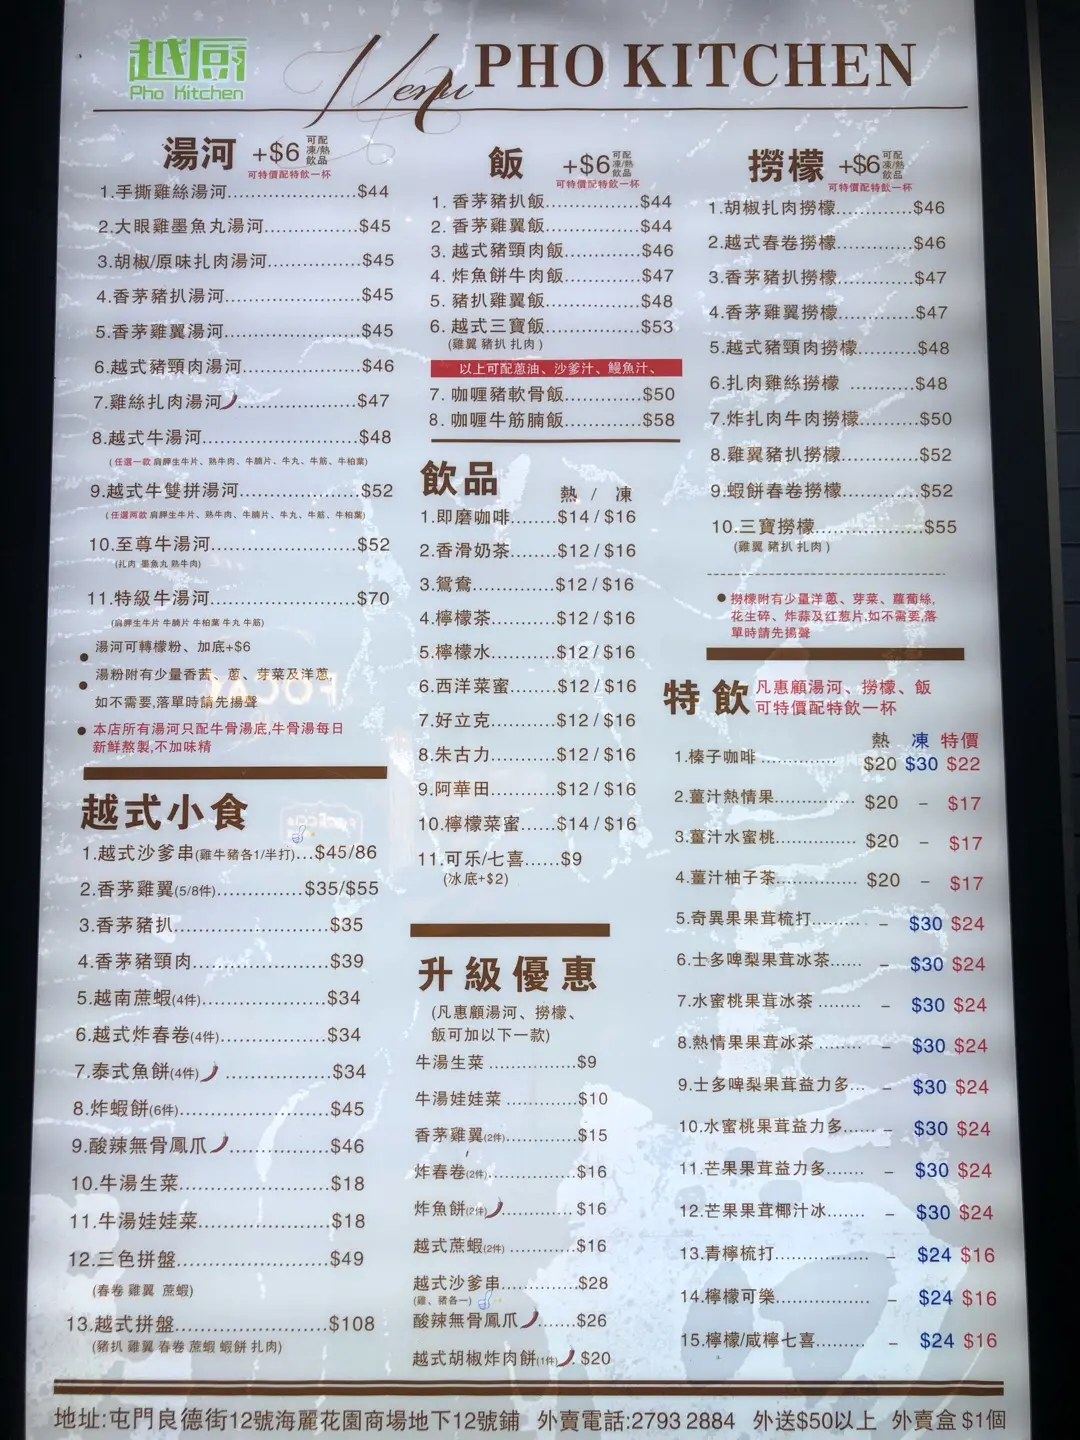 越厨 Pho Kitchen
Menu PHO KITCHEN
湯河 +$6 可配凍/熱飲品
可特價配特飲一杯
1.手撕雞絲湯河...$44
2.大眼雞墨魚丸湯河...$45
3.胡椒/原味扎肉湯河...$45
4.香茅豬扒湯河...$45
5.香茅雞翼湯河...$45
6.越式豬頸肉湯河...$46
7.雞絲扎肉湯河...$47
8.越式牛湯河...$48
(任選一款 肩胛生牛片、熟牛肉、牛腩片、牛丸、牛筋、牛柏葉)
9.越式牛雙拼湯河...$52
(任選两款 肩胛生牛片、熟牛肉、牛腩片、牛丸、牛筋、牛柏葉)
10.至尊牛湯河...$52
(扎肉 墨魚丸 熟牛肉)
11.特級牛湯河...$70
(肩胛生牛片 牛腩片 牛柏葉 牛丸 牛筋)
● 湯河可轉檬粉、加底+$6
● 湯粉附有少量香茜、蔥、芽菜及洋蔥,
如不需要,落單時請先揚聲
● 本店所有湯河只配牛骨湯底,牛骨湯每日
新鮮熬製,不加味精
越式小食
1.越式沙爹串(雞牛豬各1/半打)...$45/86
2.香茅雞翼(5/8件)...$35/$55
3.香茅豬扒...$35
4.香茅豬頸肉...$39
5.越南蔗蝦(4件)...$34
6.越式炸春卷(4件)...$34
7.泰式魚餅(4件)...$34
8.炸蝦餅(6件)...$45
9.酸辣無骨鳳爪...$46
10.牛湯生菜...$18
11.牛湯娃娃菜...$18
12.三色拼盤...$49
(春卷 雞翼 蔗蝦)
13.越式拼盤...$108
(豬扒 雞翼 春卷 蔗蝦 蝦餅 扎肉)
飯 +$6 可配凍/熱飲品
可特價配特飲一杯
1. 香茅豬扒飯...$44
2. 香茅雞翼飯...$44
3. 越式豬頸肉飯...$46
4. 炸魚餅牛肉飯...$47
5. 豬扒雞翼飯...$48
6. 越式三寶飯...$53
(雞翼 豬扒 扎肉)
以上可配蔥油、沙爹汁、鰻魚汁、
7. 咖喱豬軟骨飯...$50
8. 咖喱牛筋腩飯...$58
飲品 熱 / 凍
1.即磨咖啡...$14 / $16
2.香滑奶茶...$12 / $16
3.鴛鴦...$12 / $16
4.檸檬茶...$12 / $16
5.檸檬水...$12 / $16
6.西洋菜蜜...$12 / $16
7.好立克...$12 / $16
8.朱古力...$12 / $16
9.阿華田...$12 / $16
10.檸檬菜蜜...$14 / $16
11.可乐/七喜...$9
(冰底+$2)
升級優惠
(凡惠顧湯河、撈檬、
飯可加以下一款)
牛湯生菜...$9
牛湯娃娃菜...$10
香茅雞翼(2件)...$15
炸春卷(2件)...$16
炸魚餅(2件)...$16
越式蔗蝦(2件)...$16
越式沙爹串...$28
(雞、豬各一)
酸辣無骨鳳爪...$26
越式胡椒炸肉餅(1件). $20
撈檬 +$6 可配凍/熱飲品
可特價配特飲一杯
1.胡椒扎肉撈檬...$46
2.越式春卷撈檬...$46
3.香茅豬扒撈檬...$47
4.香茅雞翼撈檬...$47
5.越式豬頸肉撈檬...$48
6.扎肉雞絲撈檬 ...$48
7.炸扎肉牛肉撈檬...$50
8.雞翼豬扒撈檬...$52
9.蝦餅春卷撈檬...$52
10.三寶撈檬...$55
(雞翼 豬扒 扎肉)
● 撈檬附有少量洋蔥、芽菜、蘿蔔絲,
花生碎、炸蒜及红葱片,如不需要,落
單時請先揚聲
特飲 凡惠顧湯河、撈檬、飯
可特價配特飲一杯
熱 凍 特價
1.榛子咖啡 ... $20 $30 $22
2.薑汁熱情果... $20 – $17
3.薑汁水蜜桃... $20 – $17
4.薑汁柚子茶... $20 – $17
5.奇異果果茸梳打... – $30 $24
6.士多啤梨果茸冰茶... – $30 $24
7.水蜜桃果茸冰茶 ... – $30 $24
8.熱情果果茸冰茶 ... – $30 $24
9.士多啤梨果茸益力多... – $30 $24
10.水蜜桃果茸益力多... – $30 $24
11.芒果果茸益力多... – $30 $24
12.芒果果茸椰汁冰... – $30 $24
13.青檸梳打... – $24 $16
14.檸檬可樂... – $24 $16
15.檸檬/咸檸七喜... – $24 $16
地址:屯門良德街12號海麗花園商場地下12號鋪 外賣電話:2793 2884 外送$50以上 外賣盒 $1個